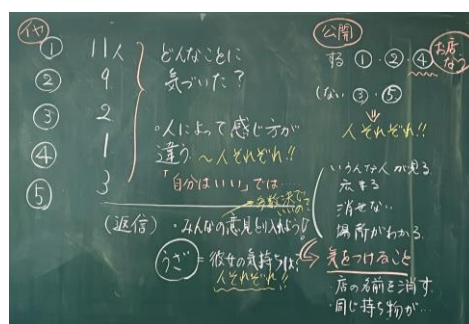 イヤ
① 11人
② 9
③ 2
④ 1
⑤ 3
どんなことに
気づいた?
・人によって感じ方が
違う ~人それぞれ!!
「自分はいい」では…
多数決で
いいの?
(返信)・みんなの意見とり入れよう!
うざ = 彼女の気持ちは?
人それぞれ!!
公開
する ①・②・④
お店
しない ③・⑤
人それぞれ!!
いろんな人が見る
広まる
消せない
場所がわかる
気をつけること
・店の名前を消す
・同じ持ち物が…